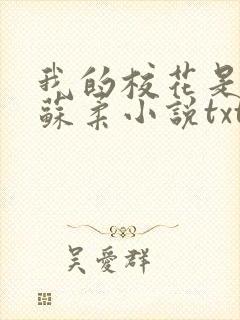 我的校花是
蘇柔小說txt
吴愛群